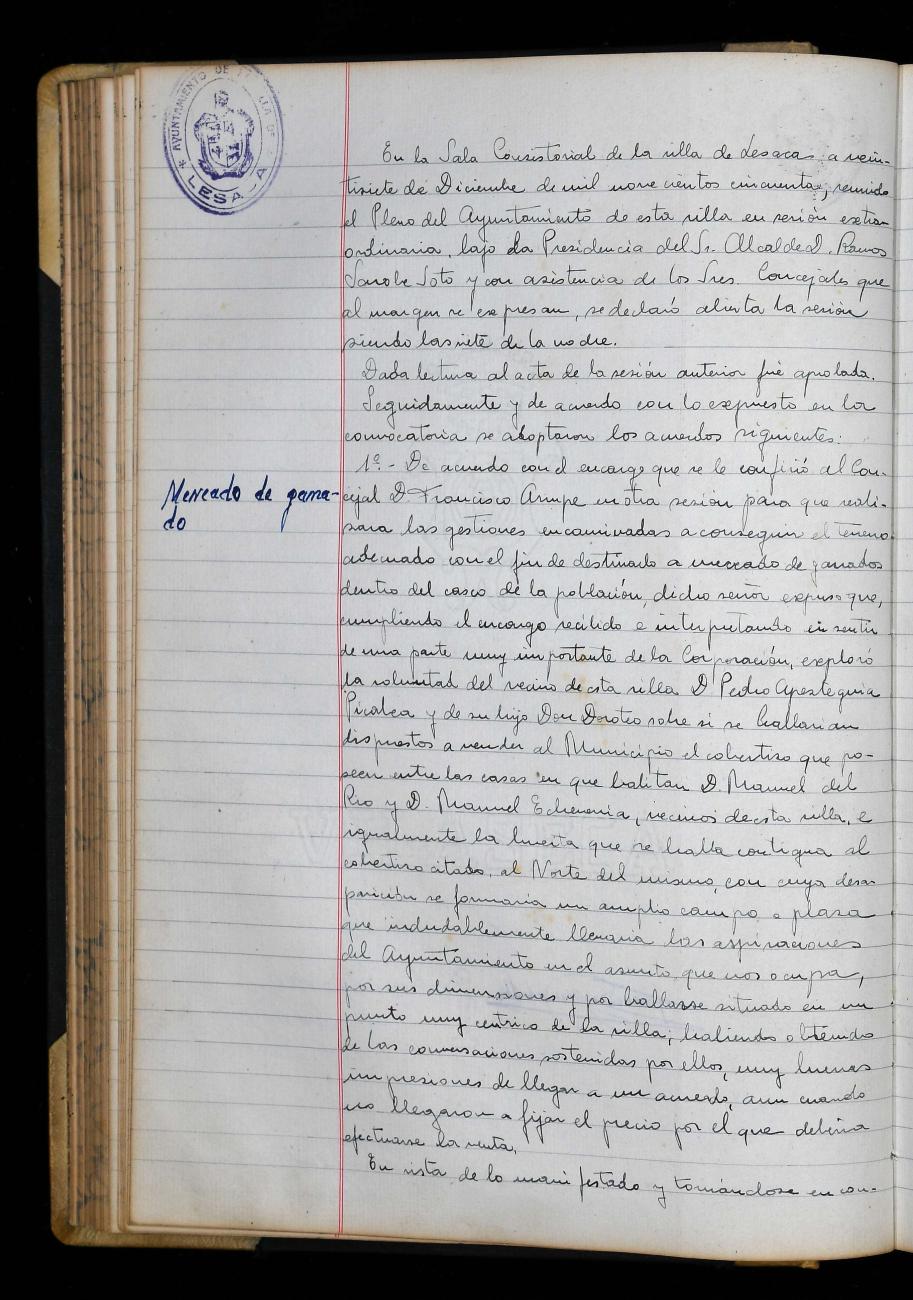 AYUNTAMIENTO DE
LESACA
En la Sala Consistorial de la villa de Lesaca, a vein-
tisiete de Diciembre de mil novecientos cincuenta, reunido
el Pleno del Ayuntamiento de esta villa en sesión extra-
ordinaria, bajo la Presidencia del Sr. Alcalde D. Ramos
Soto y con asistencia de los Sres. Concejales que
al margen se expresan, se declaró abierta la sesión
siendo las siete de la noche.
Dada lectura al acta de la sesión anterior fué aprobada.
Seguidamente y de acuerdo con lo expuesto en la
convocatoria se adoptaron los acuerdos siguientes:
1º.- De acuerdo con el encargo que se le confirió al Con-
Mercado de gana-
do
cejal D. Francisco en otra sesión para que reali-
zara las gestiones encaminadas a conseguir el terreno
adecuado con el fin de destinarlo a mercado de ganados
dentro del casco de la población, dicho señor expuso que,
cumpliendo el encargo recibido e interpretando en sentir
de una parte muy importante de la Corporación, exploró
la voluntad del vecino de esta villa D. Pedro Apesteguia
Picabea y de su hijo Don Doroteo sobre si se hallarian
dispuestos a vender al Municipio el cobertizo que po-
seen entre las casas en que habitan D. Manuel del
Rio y D. Manuel Echeverria, vecinos de esta villa, e
igualmente la huerta que se halla contigua al
cobertizo citado, al Norte del mismo, con cuya desa-
parición se formaria un amplio campo o plaza
que indudablemente llenaria las aspiraciones
del Ayuntamiento en el asunto que nos ocupa,
por sus dimensiones y por hallarse situado en un
punto muy centrico de la villa; habiendo obtenido
de las conversaciones sostenidas por ellos, muy buenas
impresiones de llegar a un acuerdo, aun cuando
no llegaron a fijar el precio por el que debiera
efectuarse la venta.
En vista de lo manifestado y tomándose en con-